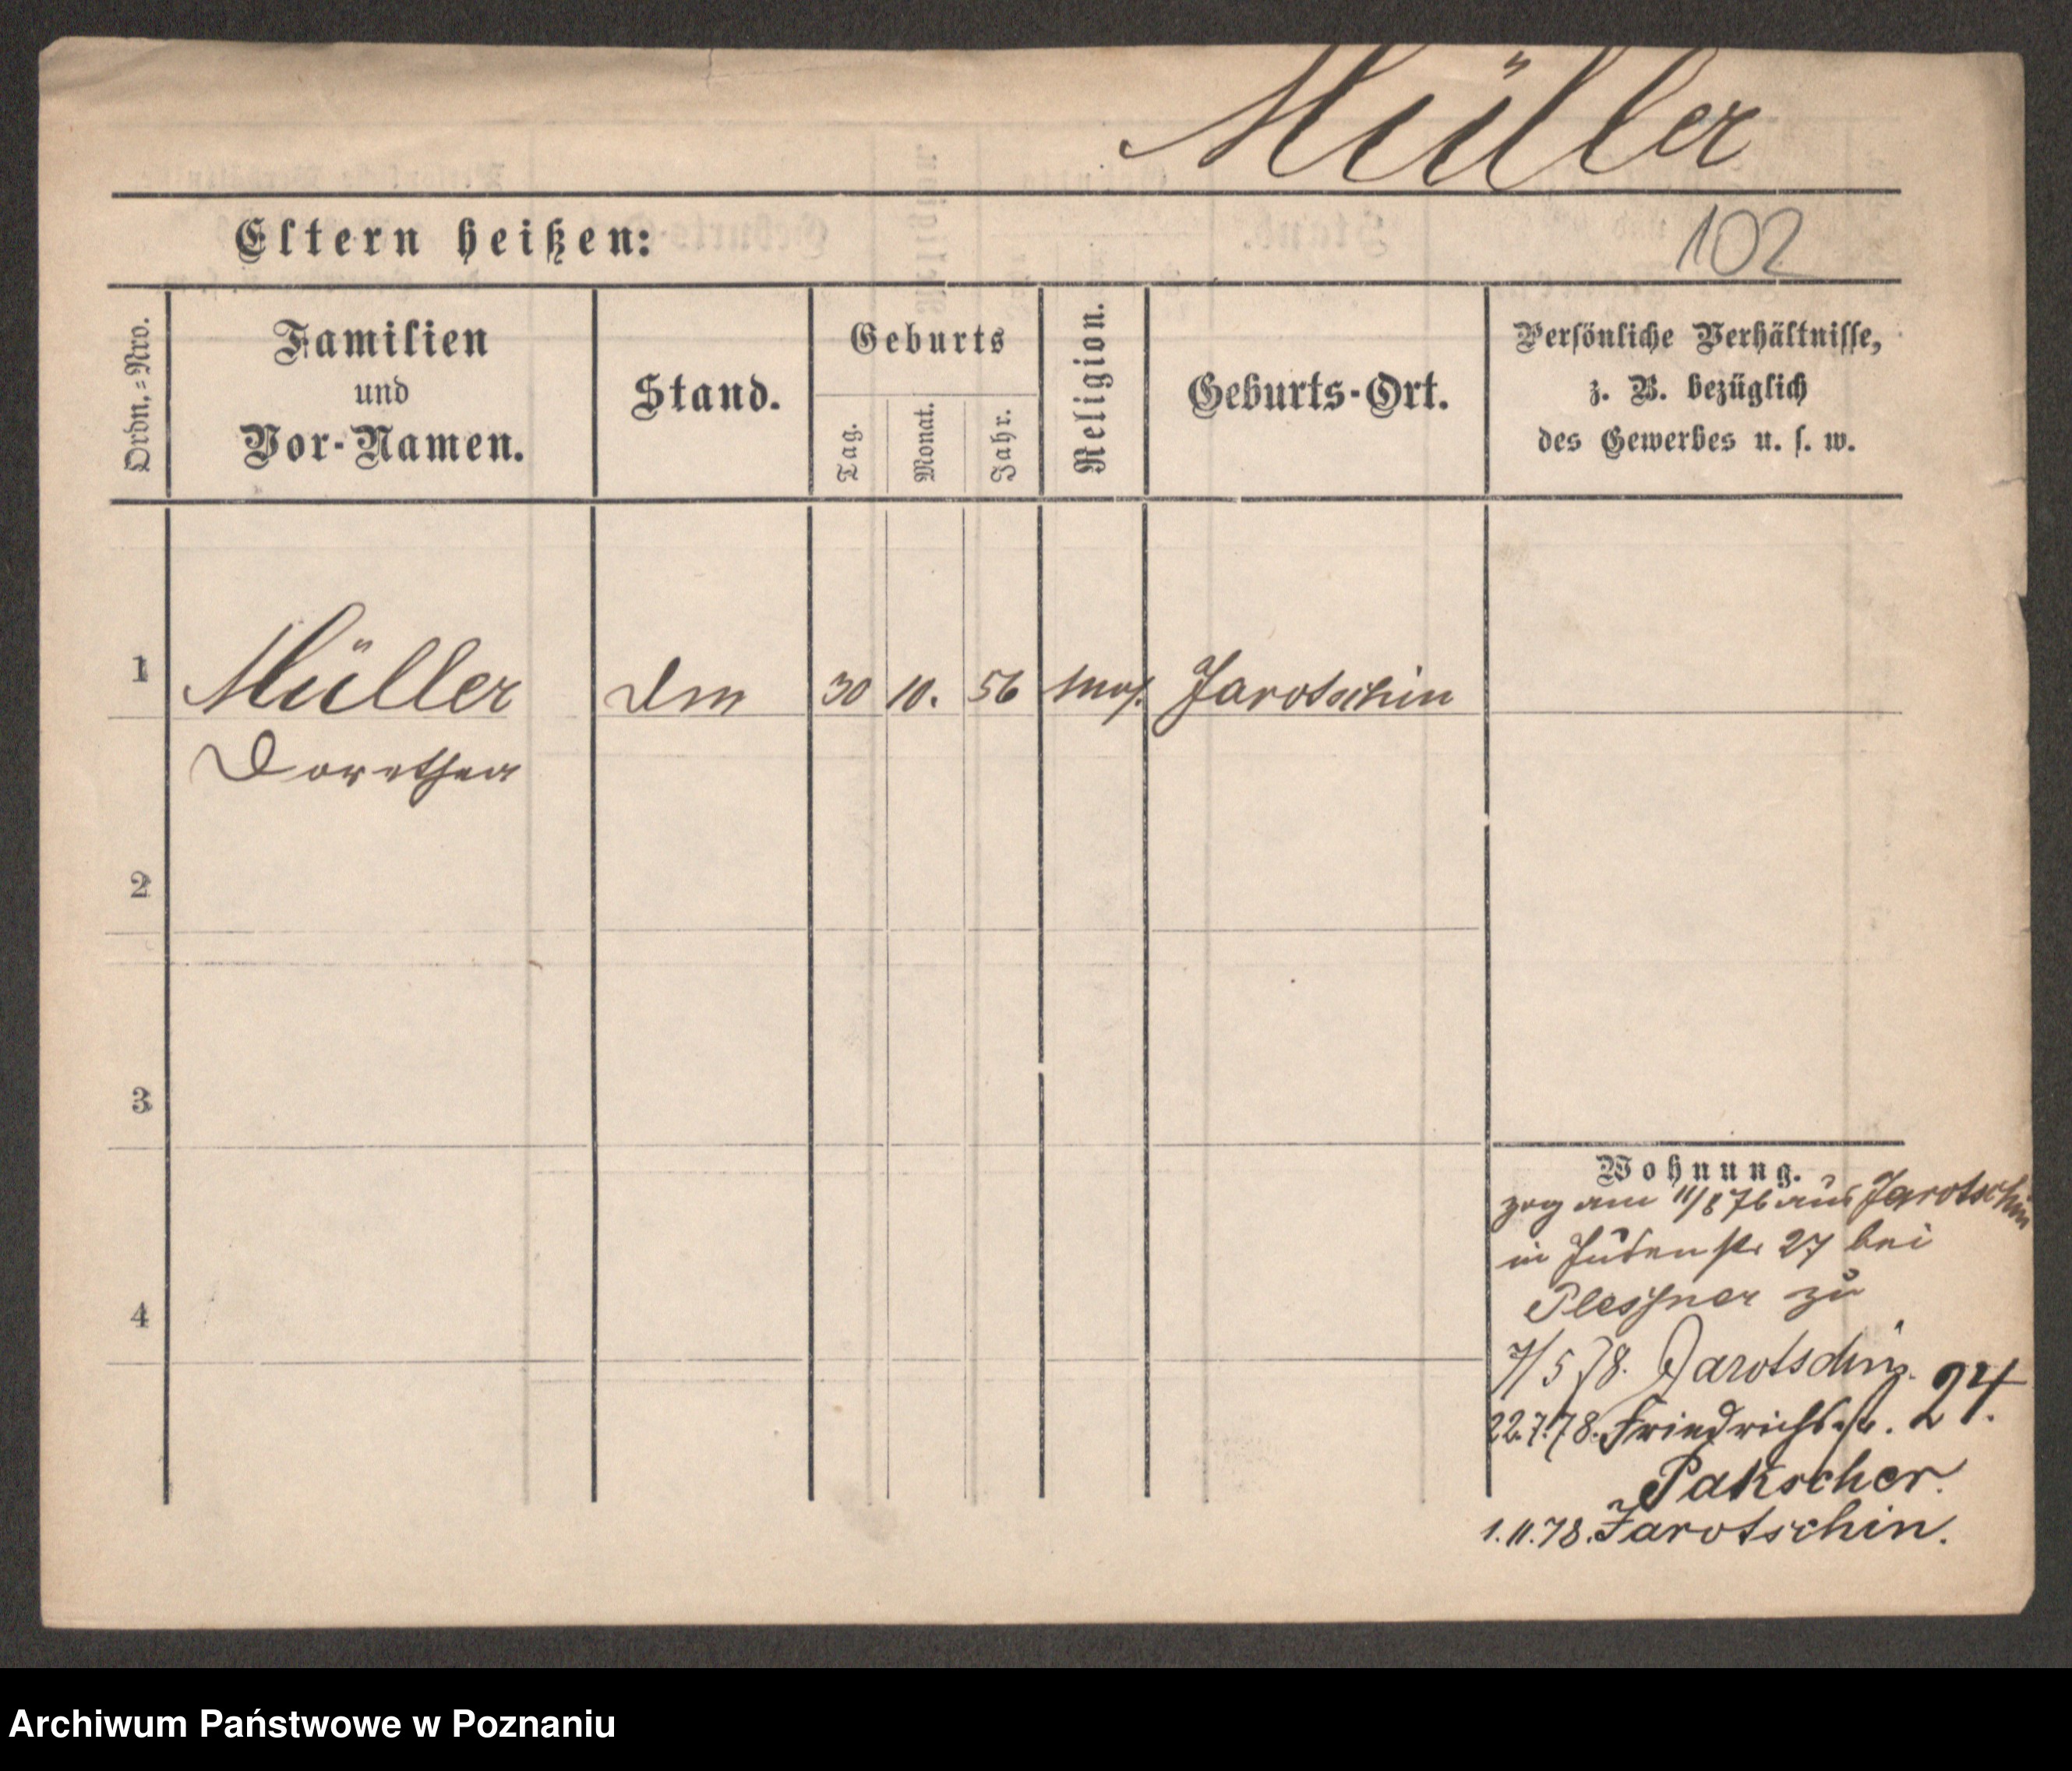 Müller
Eltern heißen:
102
Ordn.-Nro.
Familien
und
Vor-Namen.
Stand.
Geburts
Tag.
Monat.
Jahr.
Religion.
Geburts-Ort.
Persönliche Verhältnisse,
z. B. bezüglich
des Gewerbes u. s. w.
1
Müller
30
10.
56
mos.
Jarotschin
Dorothea
2
3
4
Wohnung.
zog am 11/8 76 aus Jarotschin
in Judenstr 27 bei
Plessner zu
7/5 78. Jarotschin.
22.7.78. Friedrichstr. 24.
Pakscher.
1.11.78. Jarotschin.
Archiwum Państwowe w Poznaniu